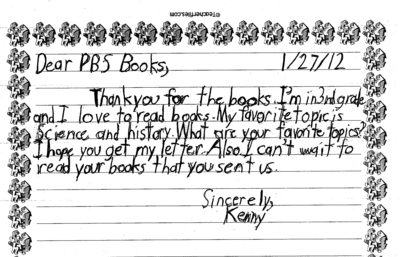 ©Teacherfiles.com
Dear PBS Books, 1/27/12
Thankyou for the books. I'm in 3rd grade
and I love to read books. My favorite topic is
Science and history. What are your favorite topics?
I hope you get my letter. Also, I can't wait to
read your books that you sent us.
Sincerely,
Kenny